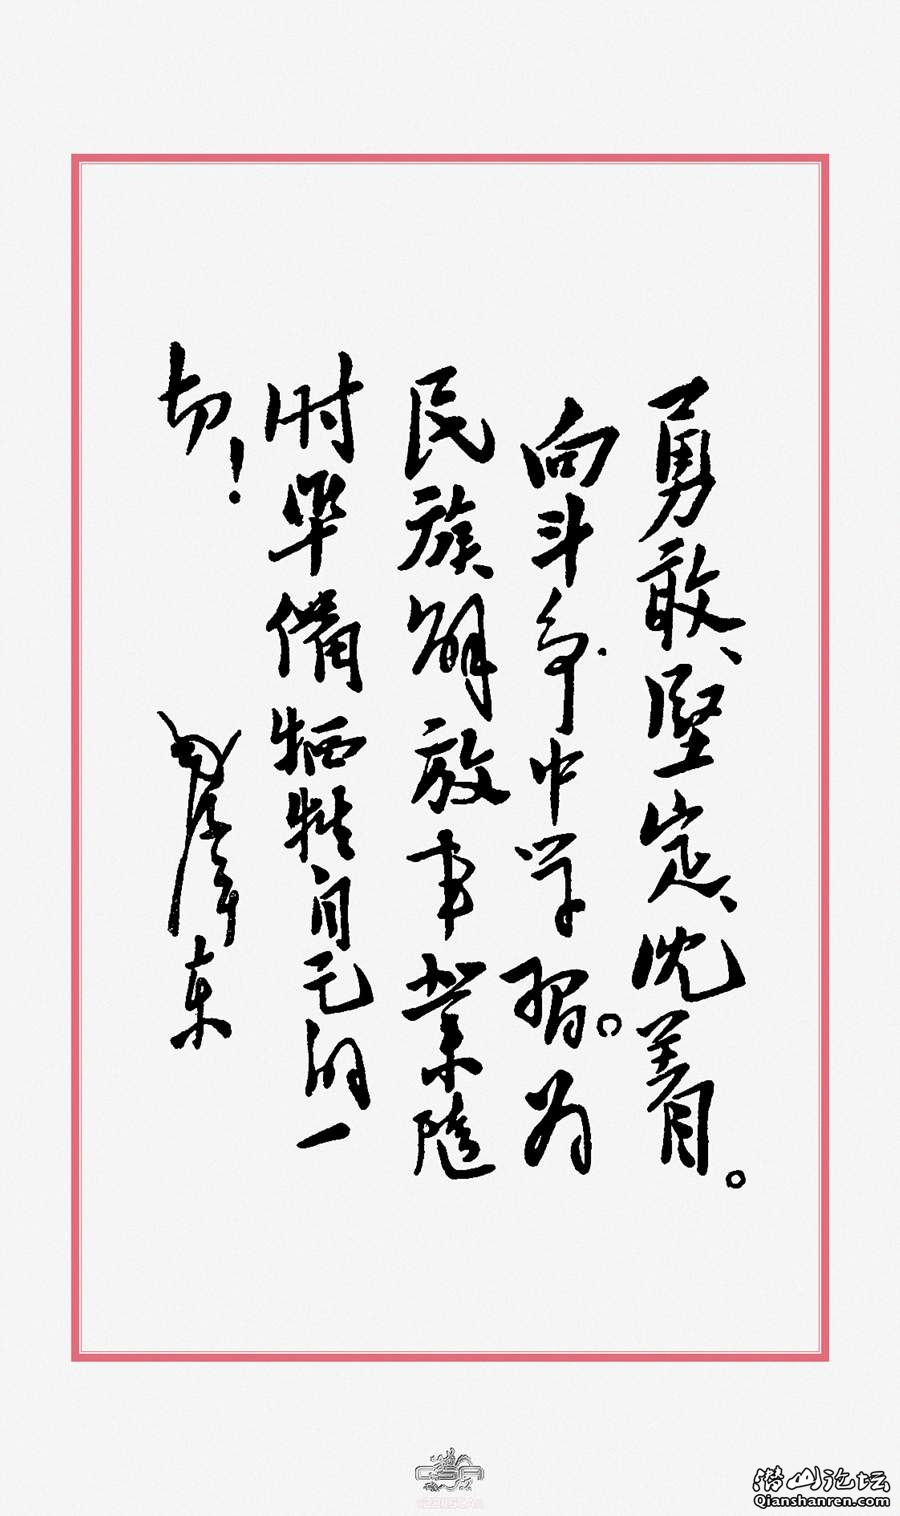 勇敢、堅定、沈着。
向斗争中学習。为
民族解放事業随
时準備牺牲自己的一
切！
毛澤東
CSA
潜山论坛
Qianshanren.com